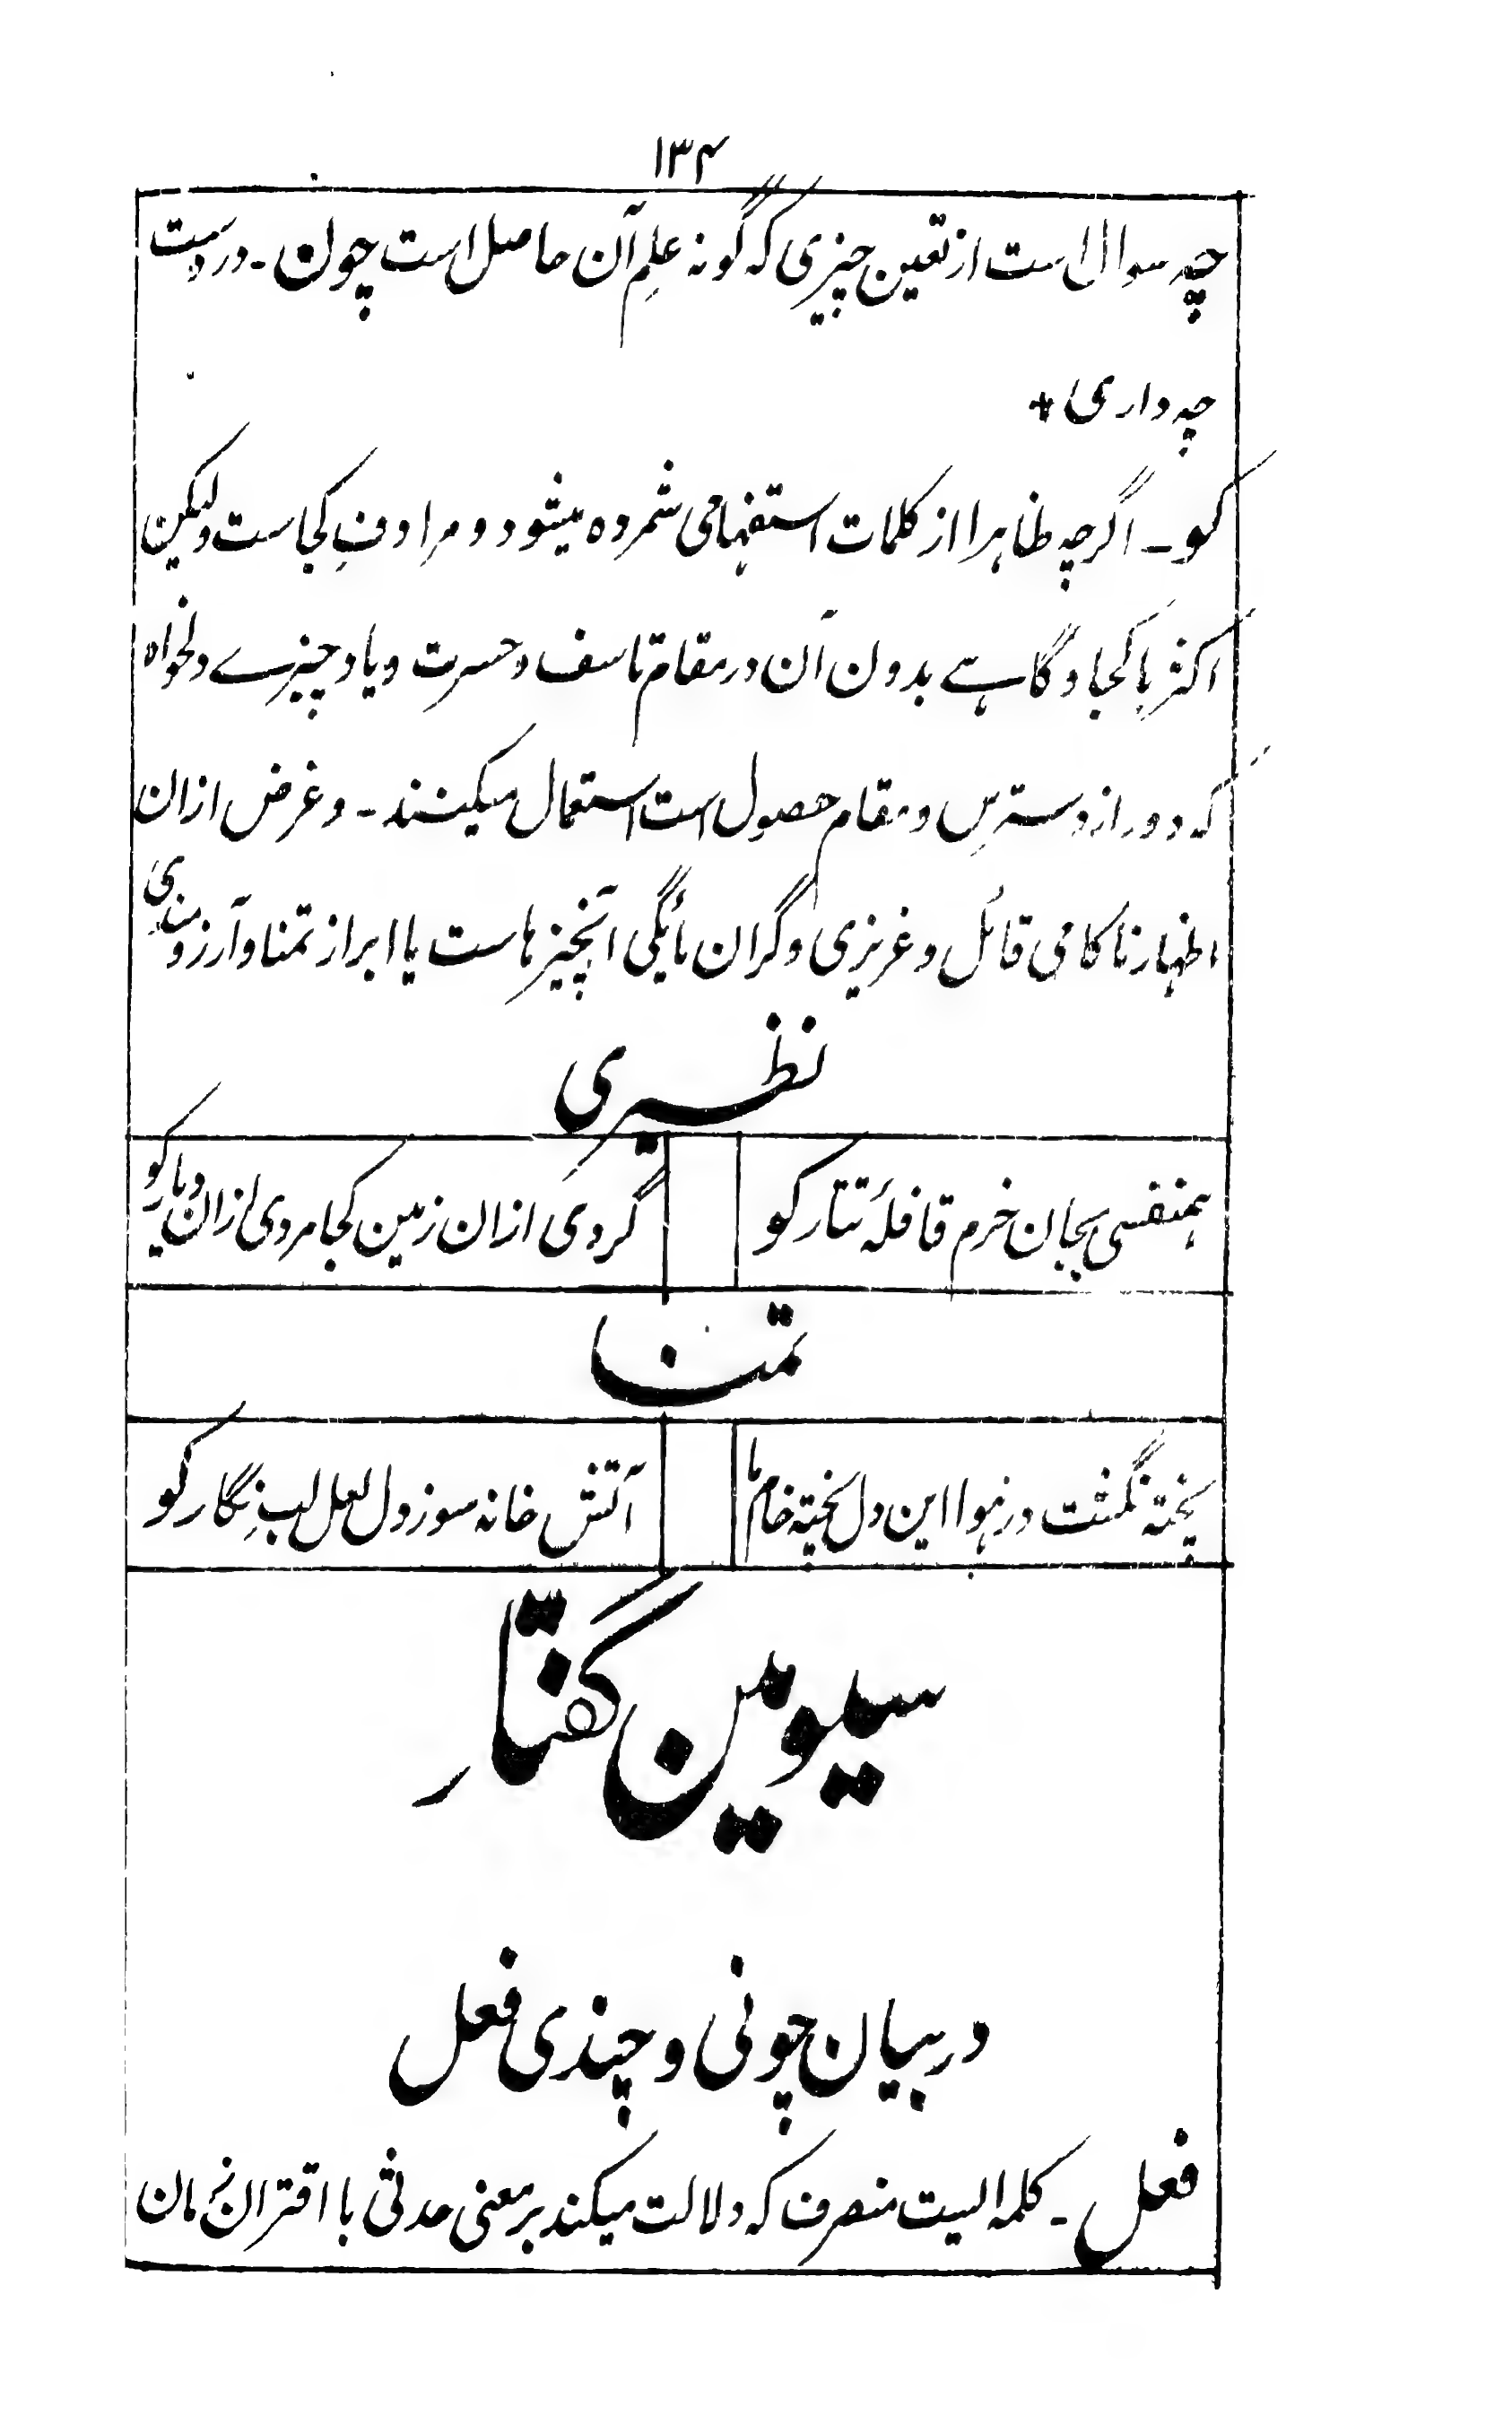 ۱۳۴
چه سوال است از تعین چیزی که گونه علمِ آن حاصل است چون ـ در دست
چه داری +
کو ـ اگرچه ظاهرا از کلمات استفهامی شمرده میشود و مرادفِ کجاست ولیکن
اکثر با کجا و گاہے بدون آن در مقام تاسف و حسرت و یاد چیزے دلخواه
که دور از دسترسِ و مقام حصول است استعمال میکنند ـ و غرض ازان
اظهار ناکامی قائل و عزیزی و گران مائگی آنچیزهاست یا ابراز تمنا و آرزومندی
نظیری
همنفسی بجان خرم قافلهٔ تتار کو
گردی ازان زمین کجا مردی ازان دیار کو
تمنا
پخته نگشت در هوا این دل پخته خام ما
آتش خانه سوز دل لعل لبِ نگار کو
سیومین گفتار
در بیان چونی و چندی فعل
فعل ـ کلمه ایست منصرف که دلالت میکند بر معنی حدثی با اقتران زمان